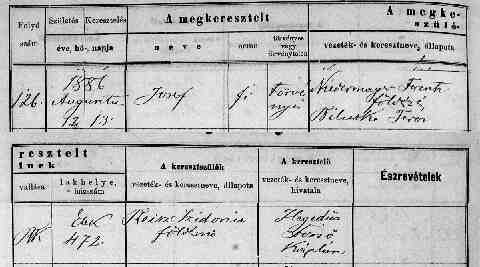 Folyó szám.
Születés Keresztelés
éve, hó-, napja
A megkeresztelt
neve
neme
törvényes vagy törvénytelen
A megke-
szülő-
vezeték- és keresztneve, állapota
126.
1886
Augustus
12 13
Josef
fi
törvé
nyes
Niedermayer Ferenc
földész
Teréz
resztelt
inek
vallása
lakhelye,
házszám
A keresztszülők
vezeték- és keresztneve, állapota
A keresztelő
vezeték- és keresztneve,
hivatala
Észrevételek
Elek
472.
Reisz Szidonia
földmű
Hegedüs
káplán